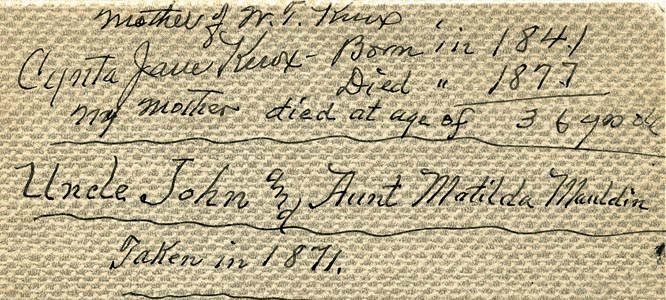 mother of W. T. Knox
Cynta Jane Knox - Born in 1841
Died " 1877
my mother died at age of 36 yrs old
Uncle John and Aunt Matilda Mauldin
Taken in 1871.